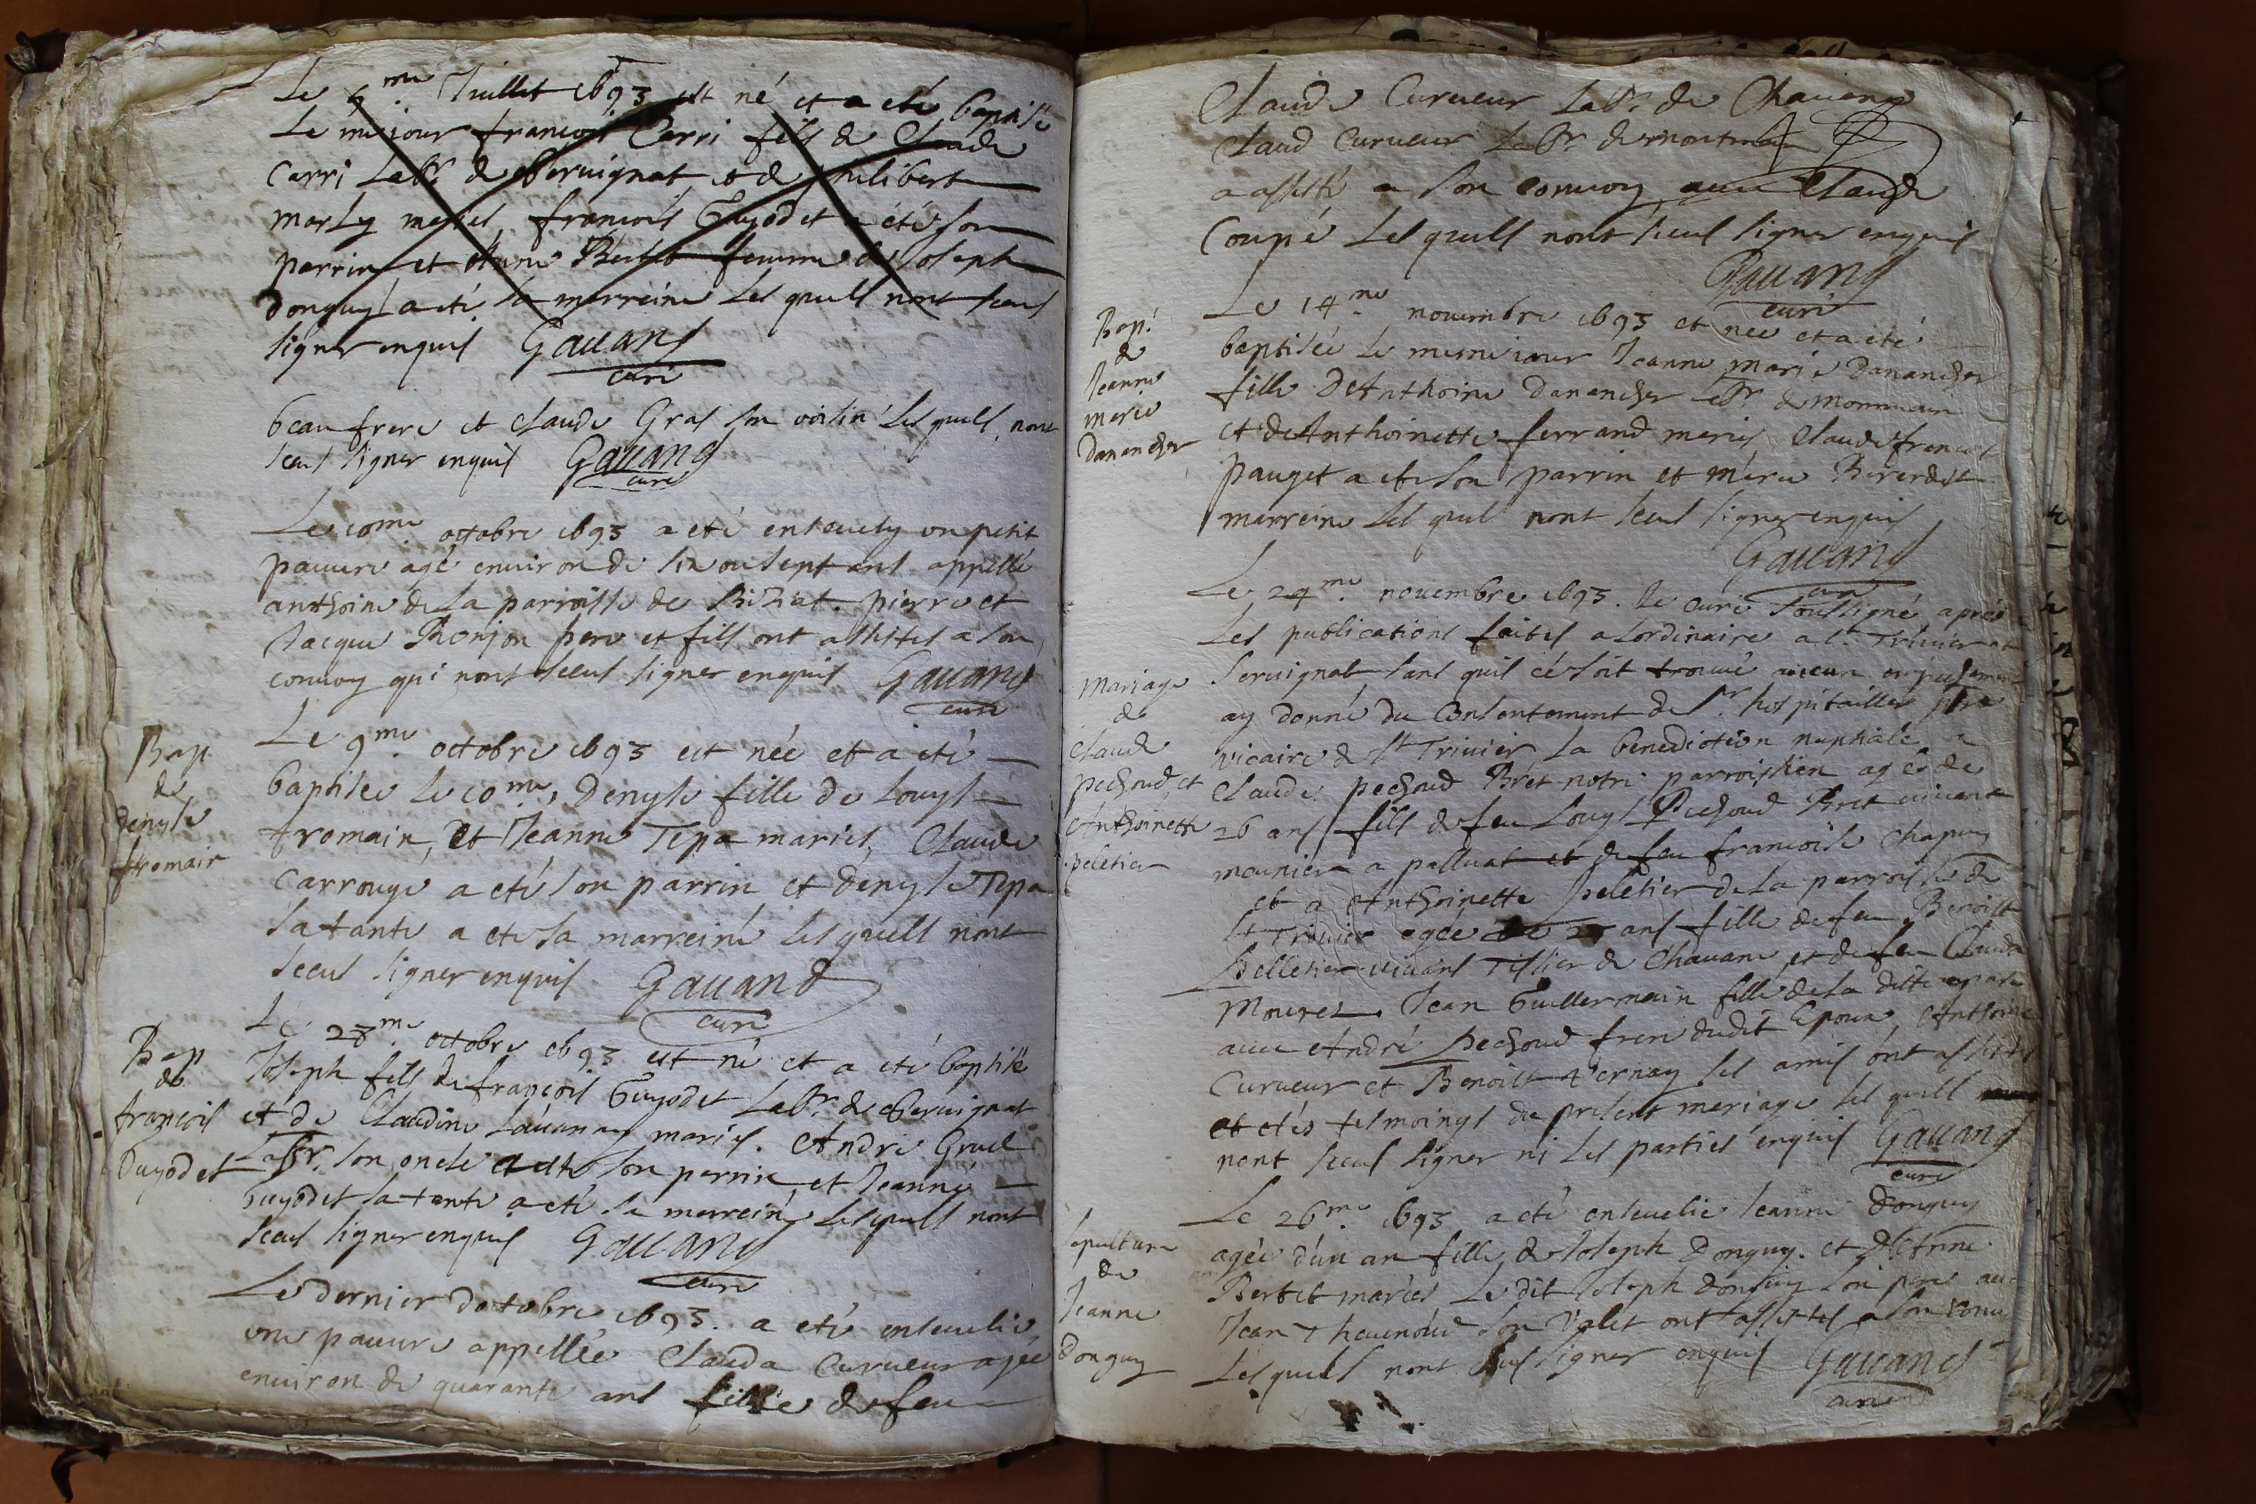 Le 6me Juillet 1693 est né et a eté baptisé
Le me jour francois Carri fils de Claude
Carri Labr. de Seruignat et de philiberte
Marly mariés, francois Guyodet a été son
parrin et Anne Bertet femme de Joseph
donguy a eté sa marreine les quells nont sceus
signer enquis Gauand
curé
beaufrere et claude Gras son voisin les quells nont
sceus signer enquis Gauand
curé
Le 10me octobre 1693 a eté enseuely un petit
pauure agé enuiron de six ou sept ans appellé
anthoine de La parroisse de Biziat. pierre et
Jacque Ronjon pere et fils ont assistes a son
conuoy qui nont sceus signer enquis Gauand
curé
Bap
de
denyse
fromain
Le 9me octobre 1693 est née et a eté
baptisee Le 10me, denyse fille de Louys
fromain, et Jeanne Tepa mariés, Claude
Carrouge a eté son parrin et denyse Tepa
sa tante a eté sa marreine les quells nont
sceus signer enquis Gauand
curé
Bap
de
françois
Guyodet
Le 28me octobre 1693 est né et a eté baptisé
Joseph fils de françois Guyodet Labr. de Seruignat
et de Claudine mariés. André Gruel
Labr. son oncle a eté son parrin et Jeanne
Guyodet sa tante a eté sa marreine lesquells nont
sceus signer enquis Gauand
curé
Le dernier doctobre 1693. a eté enseuelie,
une pauure appellée Clauda Curueur agée
enuiron de quarante ans fille de feu
Claude Curueur Labr. de Chauane
Claud Curueur Labr. de
a assisté a son conuoy auec Claude
Coupé Les quells nont sceus signer enquis
Gauand
curé
Bap.
de
Jeanne
marie
danancher
Le 14me nouembre 1693 et née et a eté
baptisée le mesme jour Jeanne marie danancher
fille dAnthoine danancher Labr de
et de Anthoinette ferrand mariés Claude francois
pauget a eté son parrin et
marreine les quels nont sceus signer enquis
Gauand
curé
Mariage
de
Claude
pechoud et
Anthoinette
peletier
Le 24me nouembre 1693. Le curé soussigné aprés
Les publications faites a lordinaire a St. Triuier et
Seruignat sans quil ce soit trouué aucun empechement
ay donné du consentement de Sr. hospitaillier ptre
vicaire de St Triuier La benediction nuptiale a
Claude pechoud Bret notre parroissien agé de
26 ans fils de feu Louys Pechoud Bret viuant
meunier a palluat et de feu francoise Chapuy
et a Anthoinette peletier de La parroisse de
St Triuier agée de ans fille de feu Benoist
Pelletier viuant Tissier de Chauane et de feu Clauda
Mourez. Jean Guillermain fille de la ditte
auec André pechoud frere dudit Epoux, Anthoine
Curueur et Benoist Vernay ses amis ont assistés
et etés tesmoings du present mariage les quells
nont sceus signer ni les parties enquis Gauand
curé
sepulture
de
Jeanne
donguy
Le 26me. 1693 a eté enseuelie Jeanne donguy
agée dun an fille de Joseph donguy. et
Bertet mariés Le dit Joseph donguy son pere auec
Jean Theuenoud son valet ont assistes a son conuoy
Lesquells nont sceus signer enquis Gauand
curé